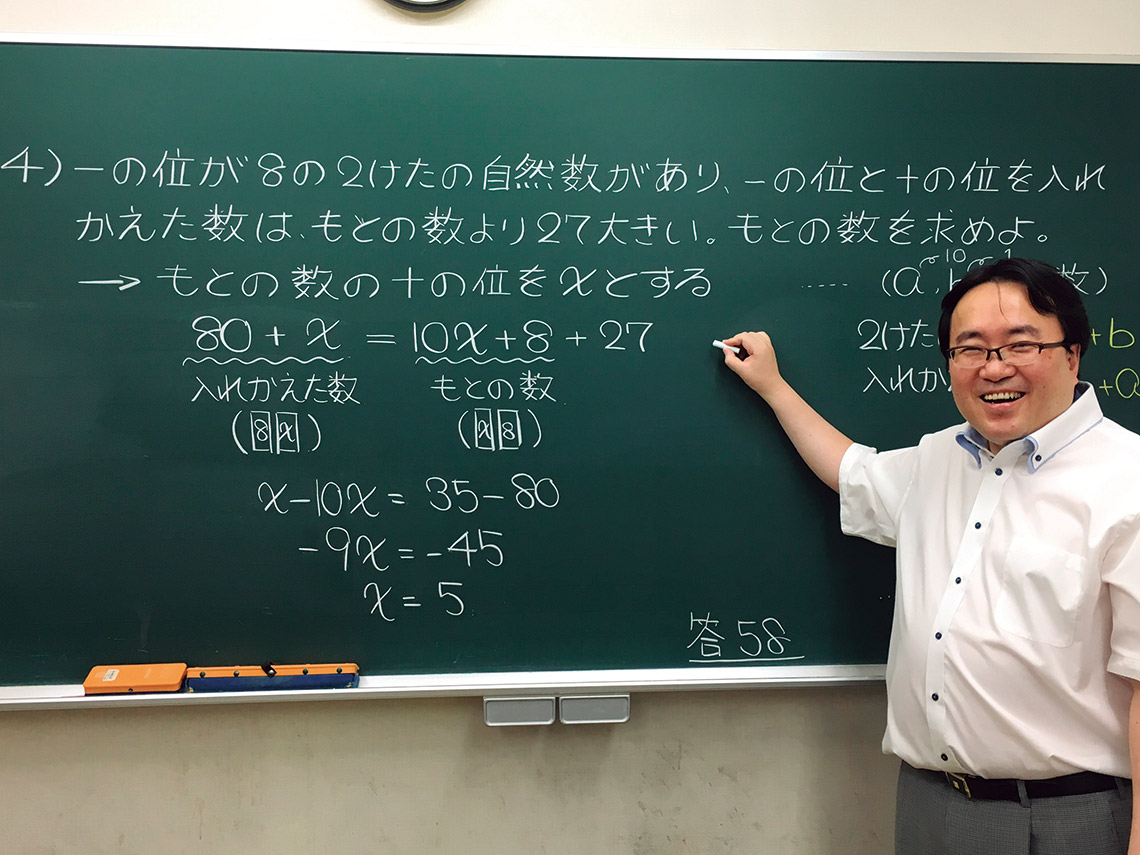 4) 一の位が8の2けたの自然数があり、一の位と十の位を入れ
かえた数は、もとの数より27大きい。もとの数を求めよ。
→ もとの数の十の位をxとする
80+x = 10x+8+27
入れかえた数 もとの数
(8x) (x8)
x-10x=35-80
-9x=-45
x=5
答 58
…… (a, 数)
10
2けた +b
入れか +a